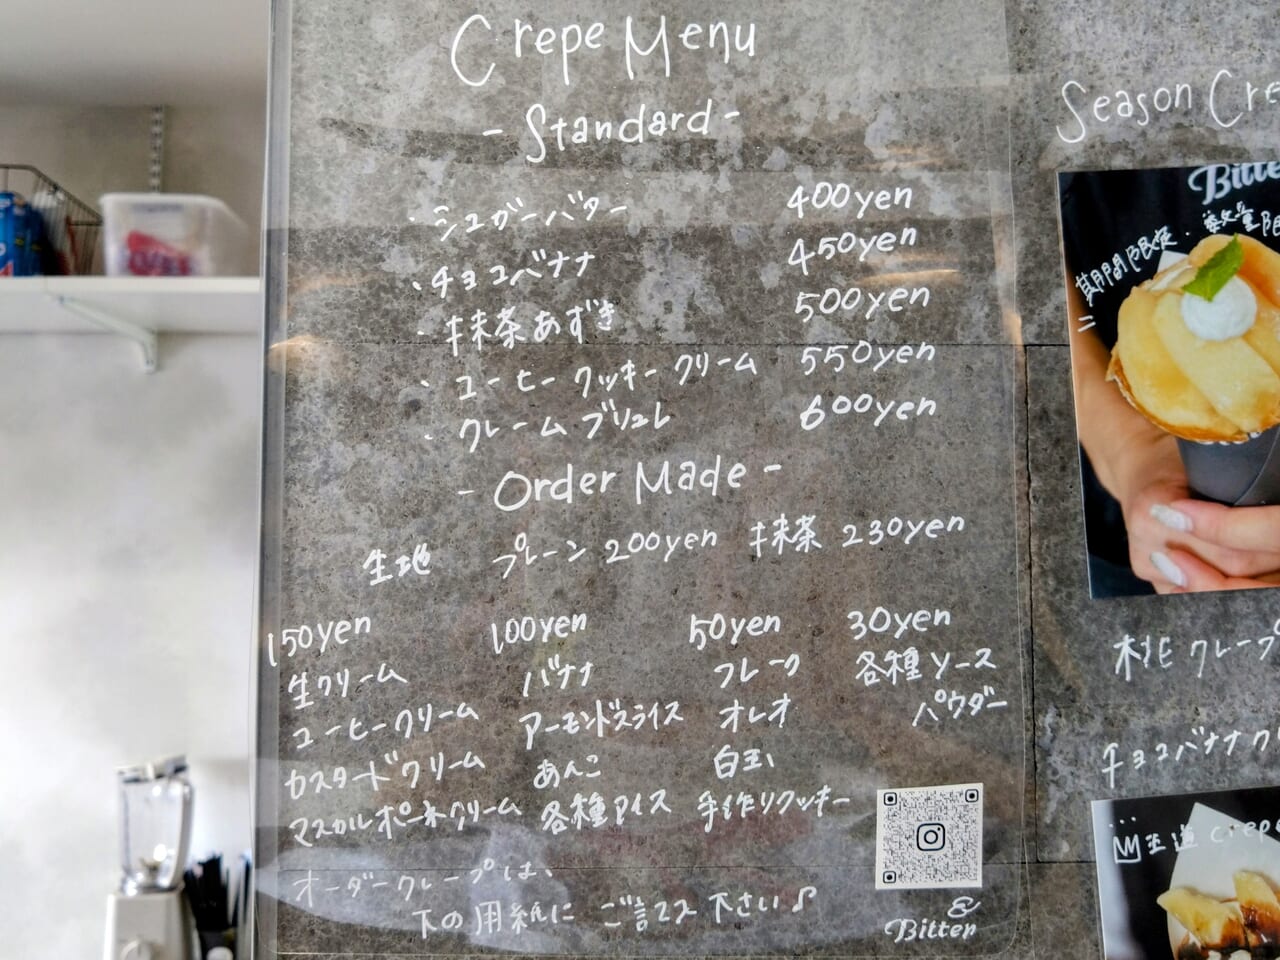 Crepe Menu
- Standard -
・シュガーバター 400yen
・チョコバナナ 450yen
・抹茶あずき 500yen
・コーヒークッキークリーム 550yen
・クレームブリュレ 600yen
- Order Made -
生地 プレーン 200yen 抹茶 230yen
150yen 100yen 50yen 30yen
生クリーム バナナ フレーク 各種ソース
コーヒークリーム アーモンドスライス オレオ パウダー
カスタードクリーム あんこ 白玉
マスカルポーネクリーム 各種アイス 手作りクッキー
オーダークレープは、
下の用紙にご記入下さい♪
&
Bitter
Season Cre
Bitte
期間限定・数量限
桃クレープ
チョコバナナク
王道crepe